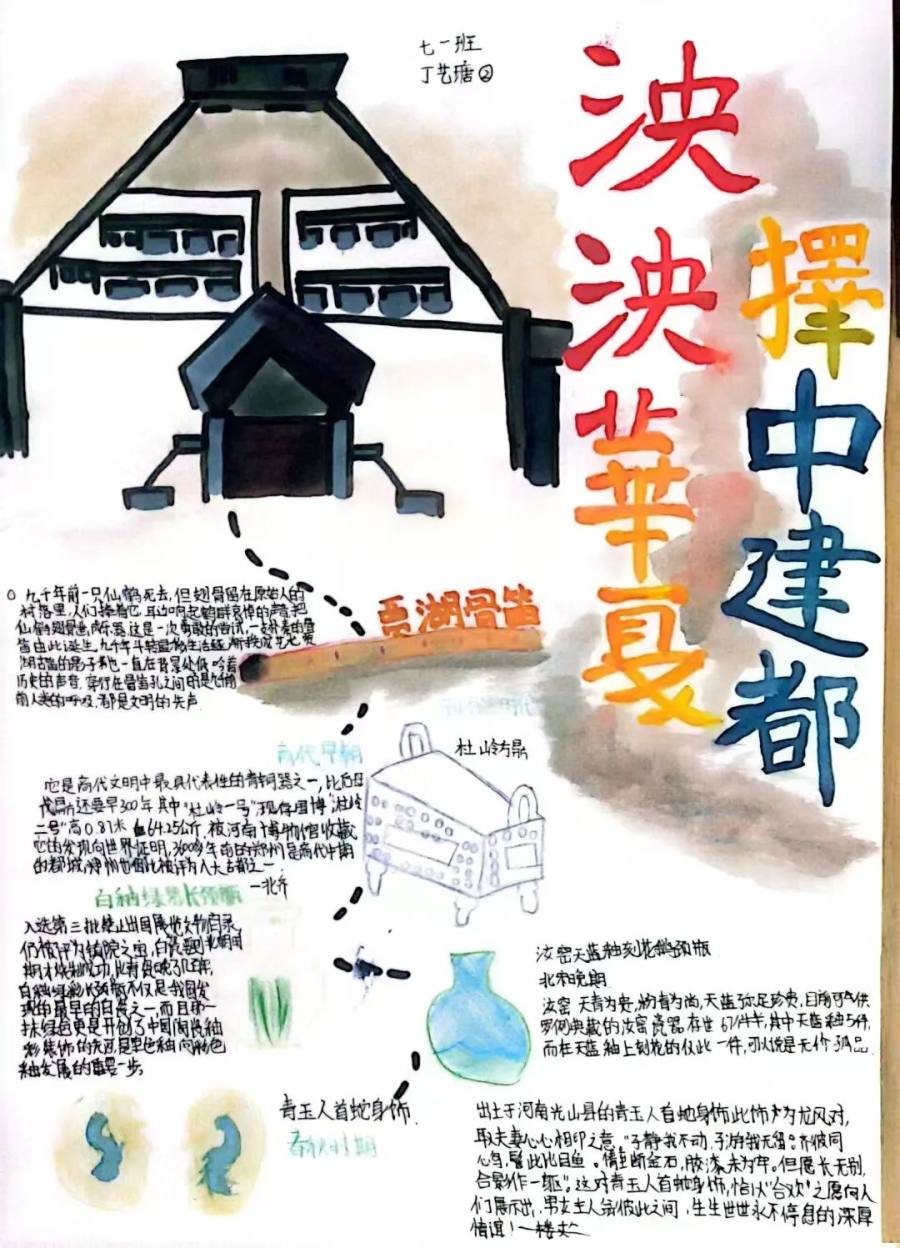 七一班
丁艺瑭②
泱泱華夏
擇中建都
九千年前一只仙鹤死去,但翅骨留在原始人的
村落里,人们
仙鹤翅骨 乐器,这是一次勇敢的尝试,一支 的骨
笛由此诞生,九千年斗转星移生活
湖古笛的影子 也一直在背景处低吟着
历史的声音,穿行在骨笛孔之间的是
人类的呼吸,都是文明的先声
贾湖骨笛
商代早期
杜岭方鼎
它是商代文明中最具代表性的青铜器之一,比后母
戊鼎还要早300年其中“杜岭一号”现存国博“杜岭
二号”高0.87米重64.25公斤,被河南博物馆收藏
它的发现向世界证明,3600多年前的郑州是商代中期
的都城,郑州也因此被评为八大古都之一
白釉绿彩长颈瓶
—北齐
入选第三批禁止出国展览文物目录
们被评为镇院之宝,白瓷
期才烧制成功,比青瓷晚了
白釉绿彩长颈瓶不仅是我国发
现的最早的白瓷之一,而且那一
抹绿色更是开创了中国陶瓷釉
彩装饰的先河,是单色釉向彩色
釉发展的重要一步。
汝窑天蓝釉刻花鹅颈瓶
北宋晚期
汝窑天青为贵,粉青为尚,天蓝弥足珍贵,目前可供
罗列典藏的汝窑瓷器存世67件半,其中天蓝釉5件,
而在天蓝釉上刻花的仅此一件,可以说是无价孤品
青玉人首蛇身饰
春秋时期
出土于河南光山县的青玉人首蛇身饰此饰
取夫妻心心相印之意,“子静我不动,子游我无留。齐彼同
心鸟,譬此比目鱼。情至断金石,胶漆未为牢。但愿长无别,
合影作一躯”。这对青玉人首蛇身饰,恰似“合欢”之愿向人
们展示出,男女主人给彼此之间,生生世世永不停息的深厚
情谊!